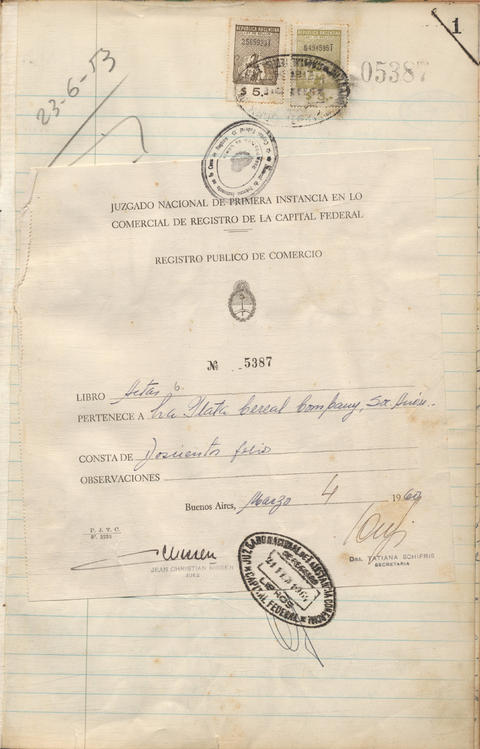 1
REPUBLICA ARGENTINA
REPUBLICA ARGENTINA
$ 5.
05387
23-6-53
JUZGADO NACIONAL DE PRIMERA INSTANCIA EN LO
COMERCIAL DE REGISTRO DE LA CAPITAL FEDERAL
REGISTRO PUBLICO DE COMERCIO
№ 5387
LIBRO Actas 6.
PERTENECE A La Plata Cereal Company, Soc. Anón.
CONSTA DE Doscientos folios
OBSERVACIONES
Buenos Aires, Marzo 4 1960
P. J. T. C.
JEAN CHRISTIAN NISSEN
JUEZ
DRA. TATIANA SCHIFRIS
SECRETARIA
JUZGADO NACIONAL DE 1ª INSTANCIA
CAPITAL FEDERAL
LIBROS